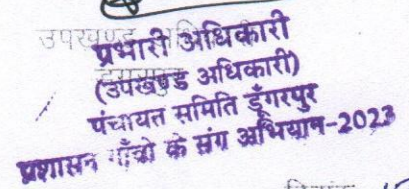 उपखण्ड
प्रभारी अधिकारी
(उपखण्ड अधिकारी)
पंचायत समिति डूँगरपुर
प्रशासन गाँवो के संग अभियान-2023